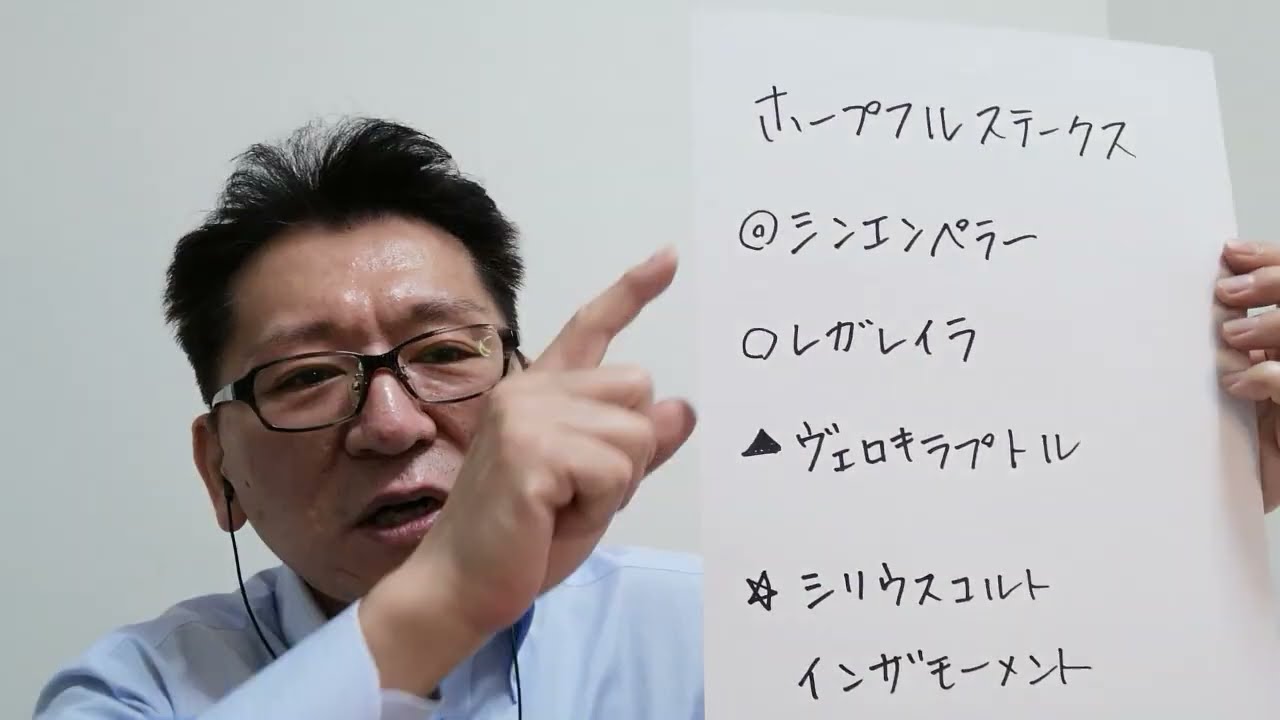 ホープフルステークス
◎シンエンペラー
○レガレイラ
▲ヴェロキラプトル
☆シリウスコルト
インザモーメント